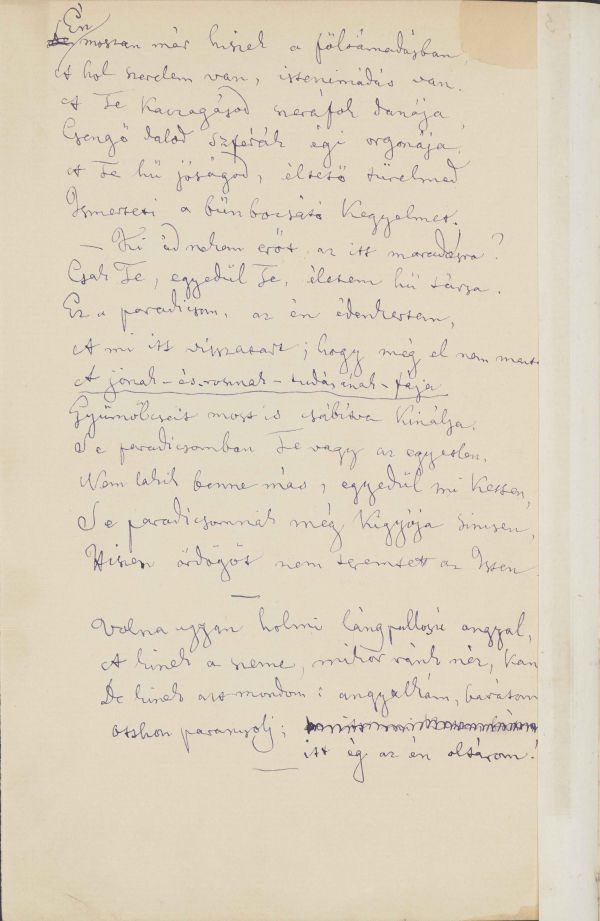 Én
moszan már hiszek a fölóámadásban,
A hol szerelem van, istenimádás van.
A Te Kaczagásod szeráfok danája,
Csengő dalod szférák égi orgonája.
A Te hű jóságod, éltető türelmed
Ismerteti a bűnbocsátó Kegyelmet.
– Ki ád nekem erőt az itt maradásra?
Csak Te, egyedül Te, életem hű társa.
Ez a paradicsom, az én édenkertem,
A mi itt visszatart; hogy még el nem ment
A jónak-és-rosznak-tudásának-fája
Gyümölcseit most is csábítva Kinálja.
S e paradicsomban Te vagy az egyetlen.
Nem lakik benne más, egyedül mi Ketten,
S e paradicsomnak még Kigyója sincsen,
Hiszen ördögöt nem teremtett az Isten
Volna ugyan holmi lángpallosú angyal,
A kinek a szeme, mikor ránk néz, kan
De kinek azt mondom: angyalkám, barátom
otthon paranysolj;
itt ég az én oltárom!